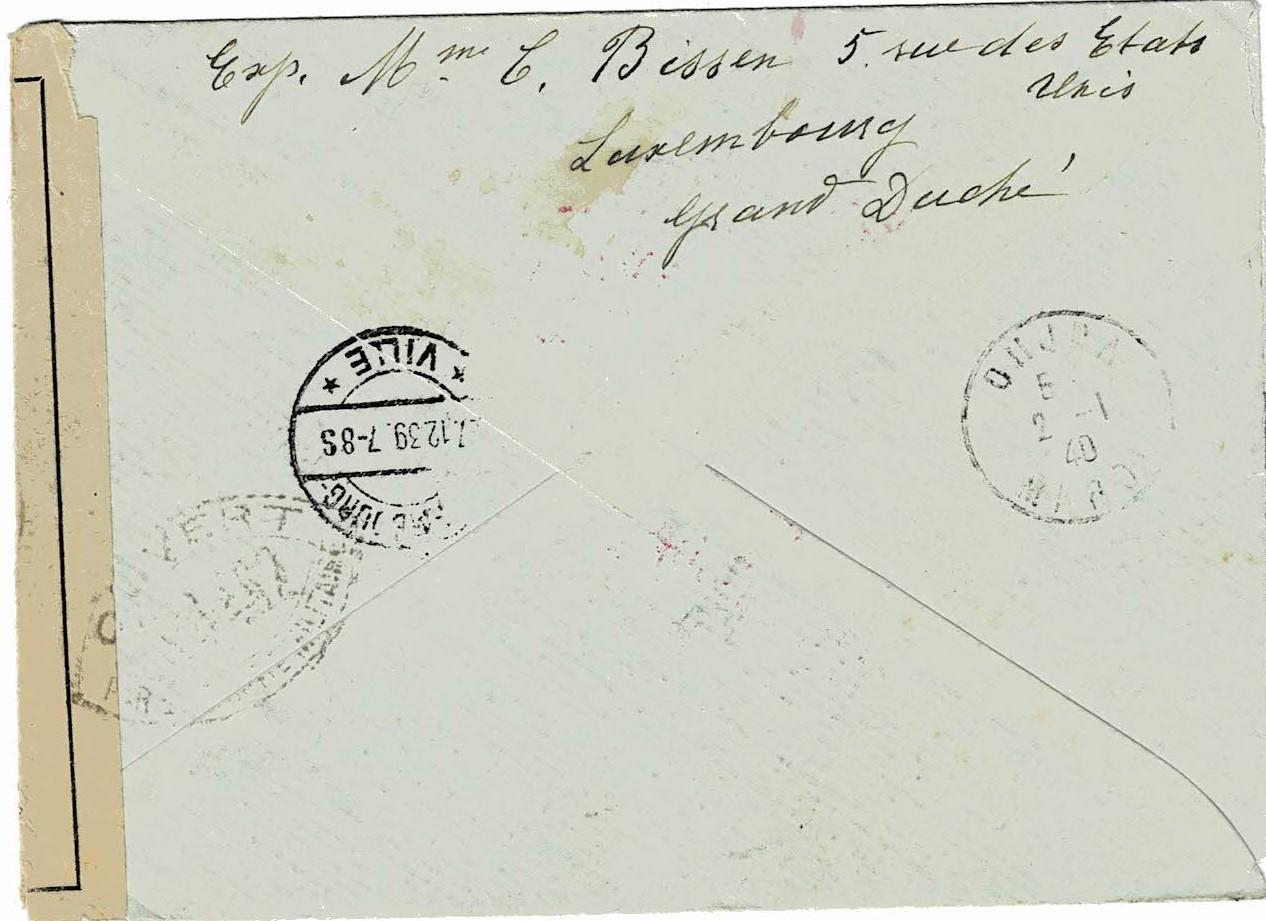 Exp. Mme C. Bissen 5. rue des Etats
Unis
Luxembourg
Grand Duché
* VILLE *
7.12.39.7-8S
OUJDA
5
2 -1
40